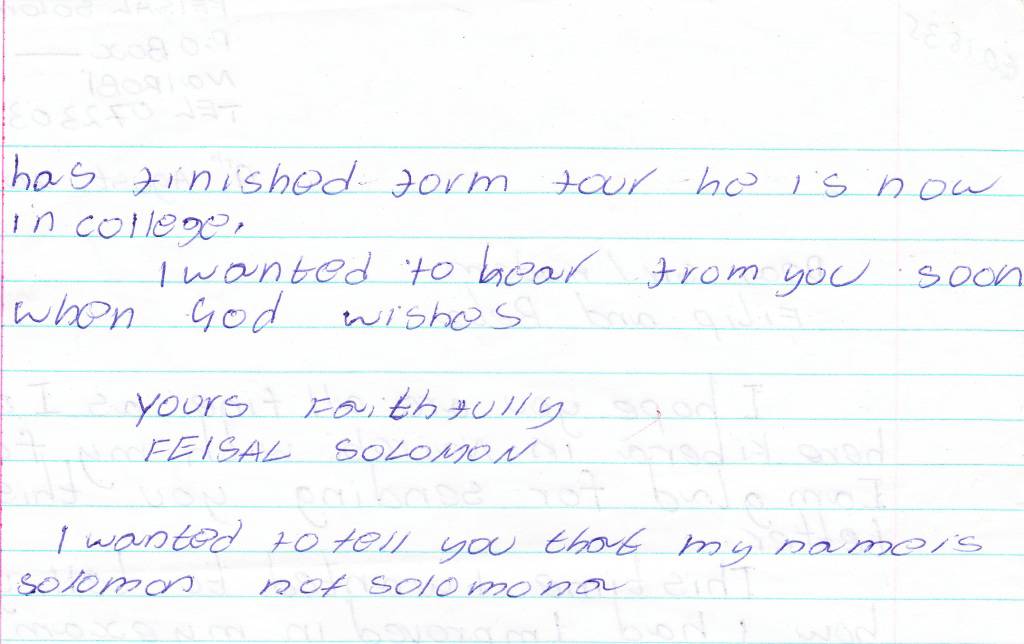 has finished form four he is now
in college.
I wanted to hear from you soon
when God wishes
yours Faithfully
FEISAL SOLOMON
I wanted to tell you that my name is
solomon not solomona